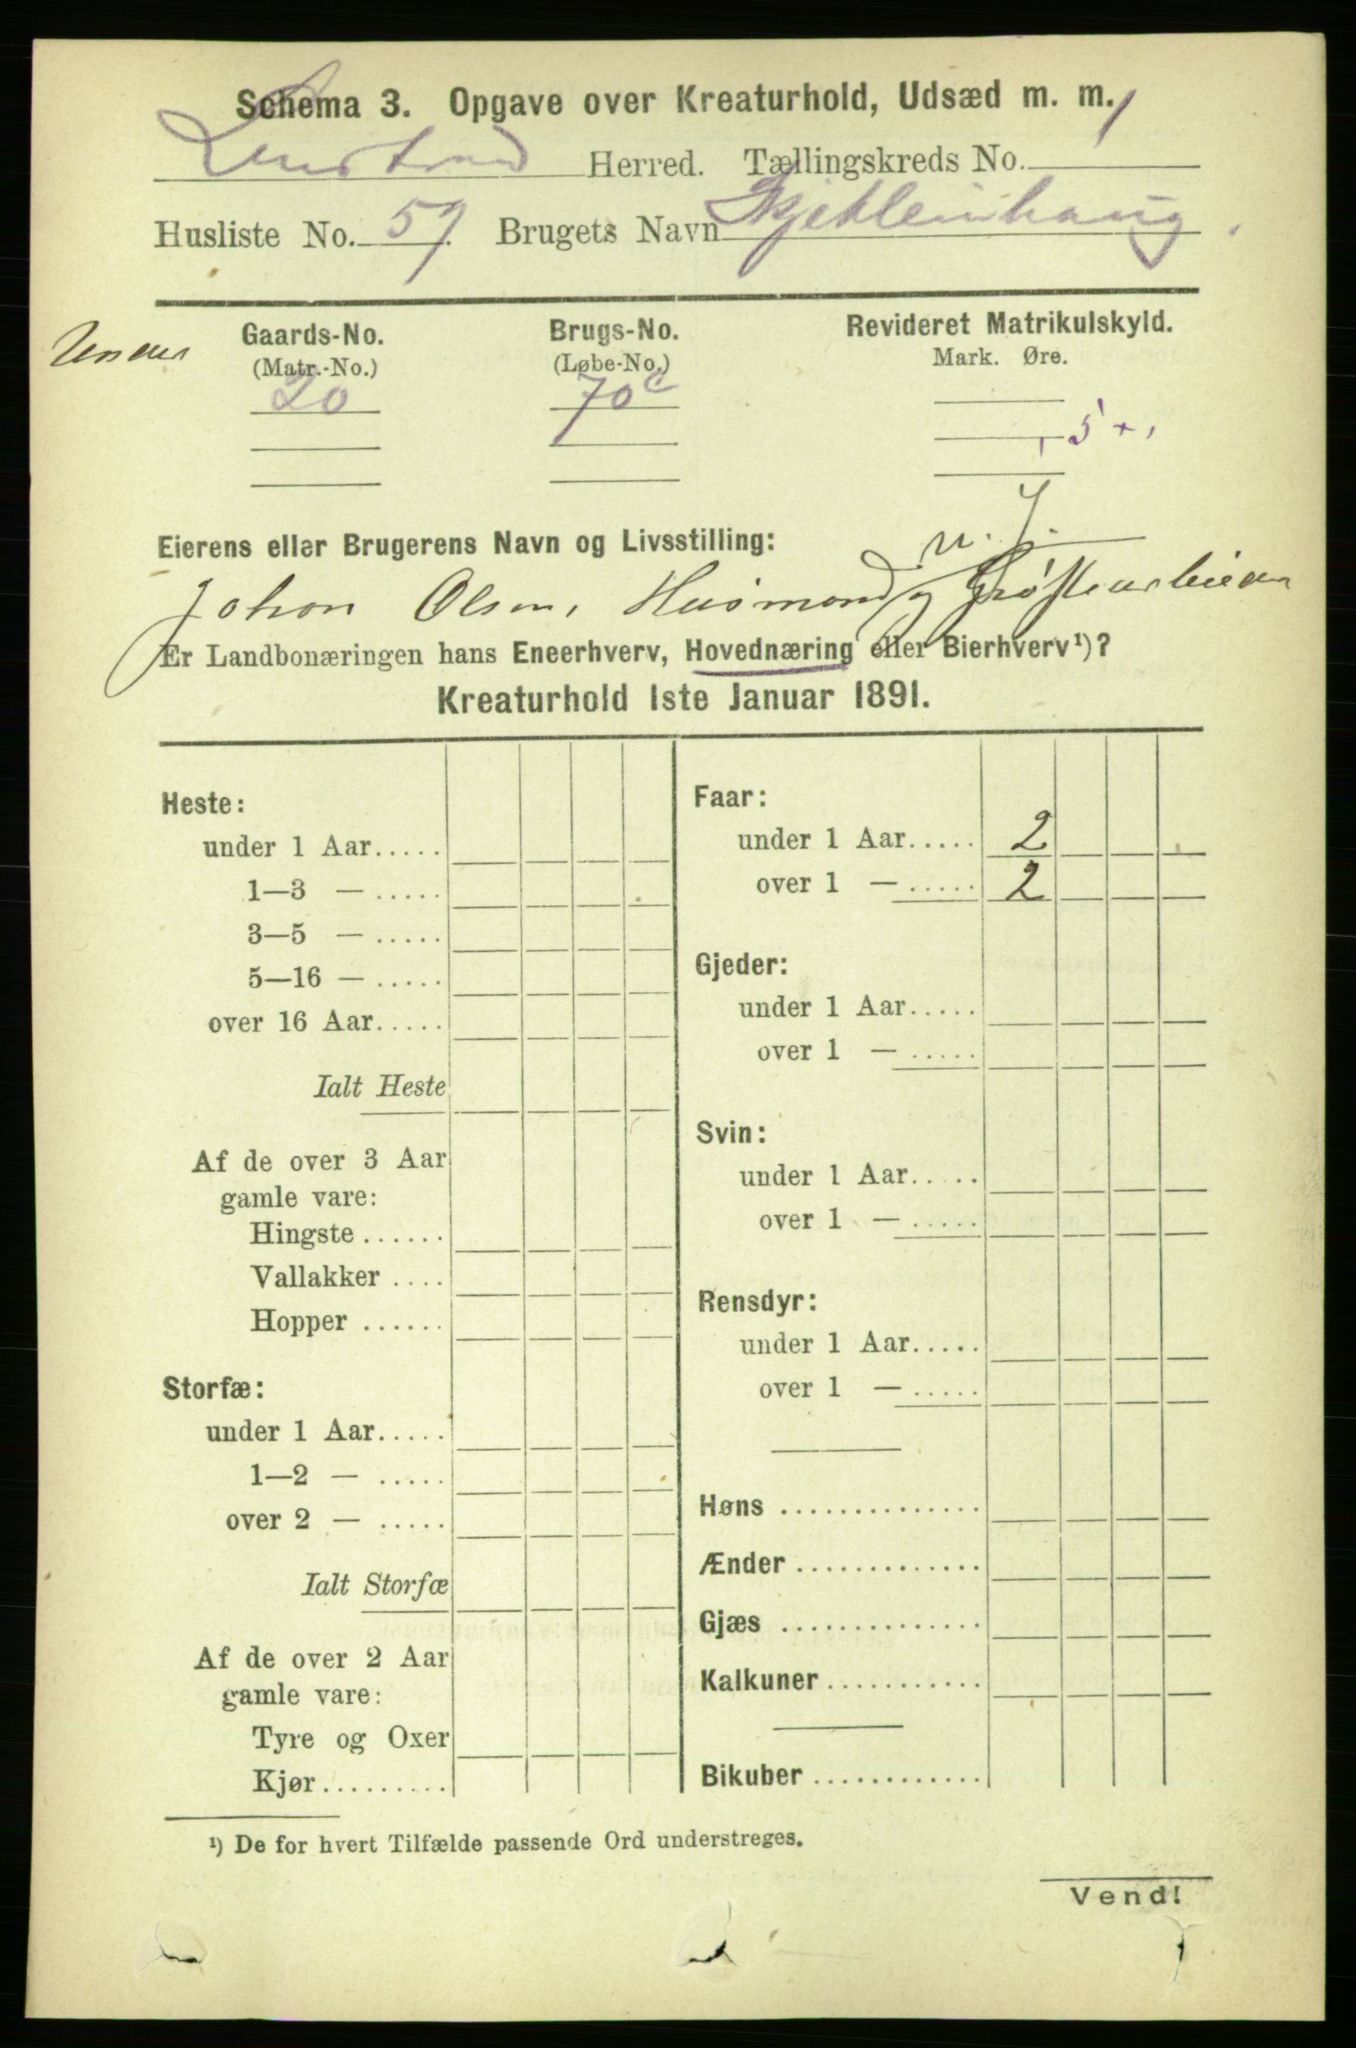 Schema 3. Opgave over Kreaturhold, Udsæd m. m.
Herred. Tællingskreds No. 1
Husliste No. 59. Brugets Navn
Under
Gaards-No. Brugs-No. Revideret Matrikulskyld.
(Matr.-No.) (Løbe-No.) Mark. Øre.
20 70c
, 5 + ,
Eierens eller Brugerens Navn og Livsstilling:
Johan Olsen, Husmand og Grøftearbeider
Er Landbonæringen hans Eneerhverv, Hovednæring eller Bierhverv¹)?
Kreaturhold 1ste Januar 1891.
Heste:
under 1 Aar.....
1—3 — .....
3—5 — .....
5—16 — .....
over 16 Aar.....
Ialt Heste
Af de over 3 Aar
gamle vare:
Hingste ......
Vallakker ....
Hopper ......
Storfæ:
under 1 Aar.....
1—2 — .....
over 2 — .....
Ialt Storfæ
Af de over 2 Aar
gamle vare:
Tyre og Oxer
Kjør.........
Faar:
under 1 Aar..... 2
over 1 — ..... 2
Gjeder:
under 1 Aar.....
over 1 — .....
Svin:
under 1 Aar.....
over 1 — .....
Rensdyr:
under 1 Aar.....
over 1 — .....
Høns ..............
Ænder .............
Gjæs ..............
Kalkuner...........
Bikuber ............
¹) De for hvert Tilfælde passende Ord understreges.
Vend!